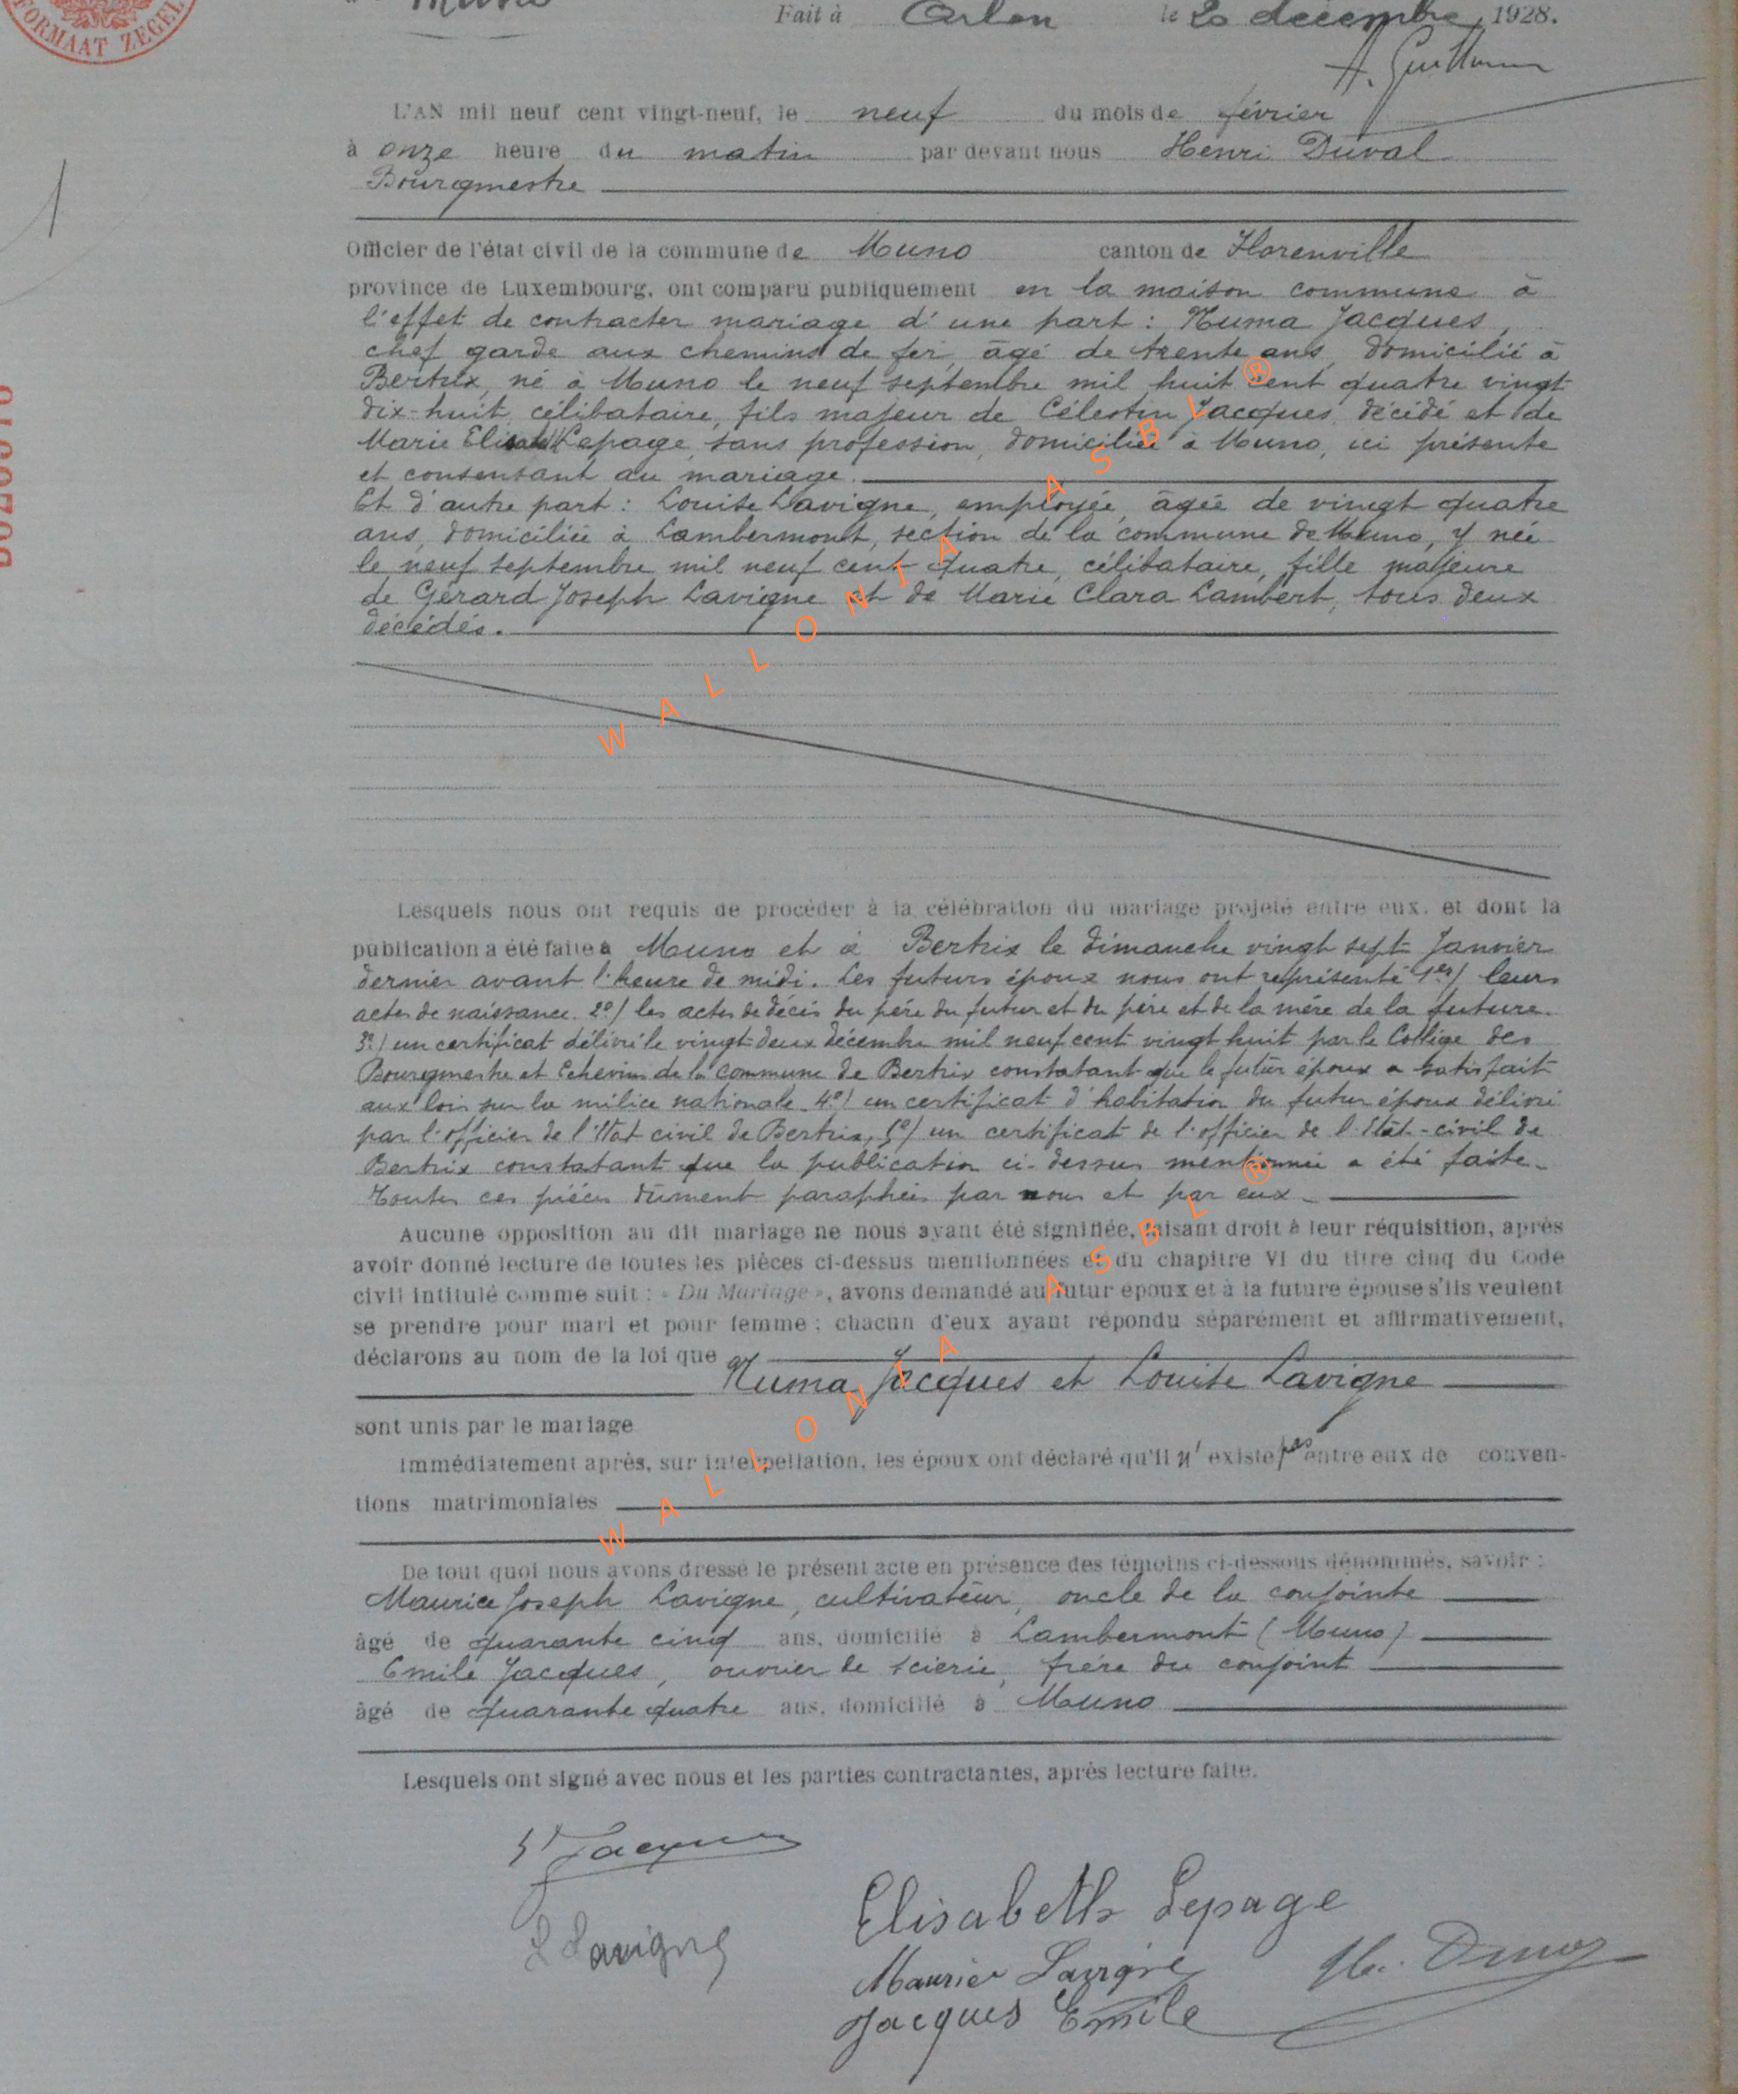 Muno
Fait à Arlon le 20 décembre 1928.
FORMAAT ZEGEL
L'AN mil neuf cent vingt-neuf, le neuf du mois de février
à onze heure du matin par devant nous Henri Duval
Bourgmestre
Officier de l'état civil de la commune de Muno canton de Florenville
province de Luxembourg, ont comparu publiquement en la maison commune à
l'effet de contracter mariage d'une part : Numa Jacques,
chef garde aux chemins de fer, âgé de trente ans, domicilié à
Bertrix, né à Muno le neuf septembre mil huit cent quatre vingt
dix-huit, célibataire, fils majeur de Célestin Jacques, décédé et de
Marie Lepage, sans profession, domiciliée à Muno, ici présente
et consentant au mariage.
Et d'autre part : Louise Lavigne, employée, âgée de vingt quatre
ans, domiciliée à Lambermont, section de la commune de Muno, y née
le neuf septembre mil neuf cent quatre, célibataire, fille majeure
de Gérard Joseph Lavigne et de Marie Clara Lambert, tous deux
décédés.
WALLONIA ASBL ®
Lesquels nous ont requis de procéder à la célébration du mariage projeté entre eux, et dont la
publication a été faite à Muno et à Bertrix le dimanche vingt sept Janvier
dernier avant l'heure de midi. Les futurs époux nous ont représenté 1er/ leurs
actes de naissance. 2º/ les actes de décès du père du futur et du père et de la mère de la future.
3º/ un certificat délivré le vingt-deux décembre mil neuf cent vingt huit par le Collège des
Bourgmestre et Echevins de la commune de Bertrix constatant que le futur époux a satisfait
aux lois sur la milice nationale. 4º/ un certificat d'habitation du futur époux délivré
par l'officier de l'Etat civil de Bertrix, 5º/ un certificat de l'officier de l'Etat-civil de
Bertrix constatant que la publication ci-dessus mentionnée a été faite.
Toutes ces pièces dûment paraphées par nous et par eux.
Aucune opposition au dit mariage ne nous ayant été signifiée, faisant droit à leur réquisition, après
avoir donné lecture de toutes les pièces ci-dessus mentionnées et du chapitre VI du titre cinq du Code
civil intitulé comme suit : « Du Mariage », avons demandé au futur époux et à la future épouse s'ils veulent
se prendre pour mari et pour femme ; chacun d'eux ayant répondu séparément et affirmativement,
déclarons au nom de la loi que
Numa Jacques et Louise Lavigne
sont unis par le mariage
Immédiatement après, sur interpellation, les époux ont déclaré qu'il n'existe pas entre eux de conven-
tions matrimoniales
WALLONIA ASBL ®
De tout quoi nous avons dressé le présent acte en présence des témoins ci-dessous dénommés, savoir :
Maurice Joseph Lavigne, cultivateur, oncle de la conjointe
âgé de quarante cinq ans, domicilié à Lambermont (Muno)
Emile Jacques, ouvrier de scierie, frère du conjoint
âgé de quarante quatre ans, domicilié à Muno
Lesquels ont signé avec nous et les parties contractantes, après lecture faite.
Jacques
L Lavigne
Elisabeth Lepage
Maurice Lavigne
Jacques Emile